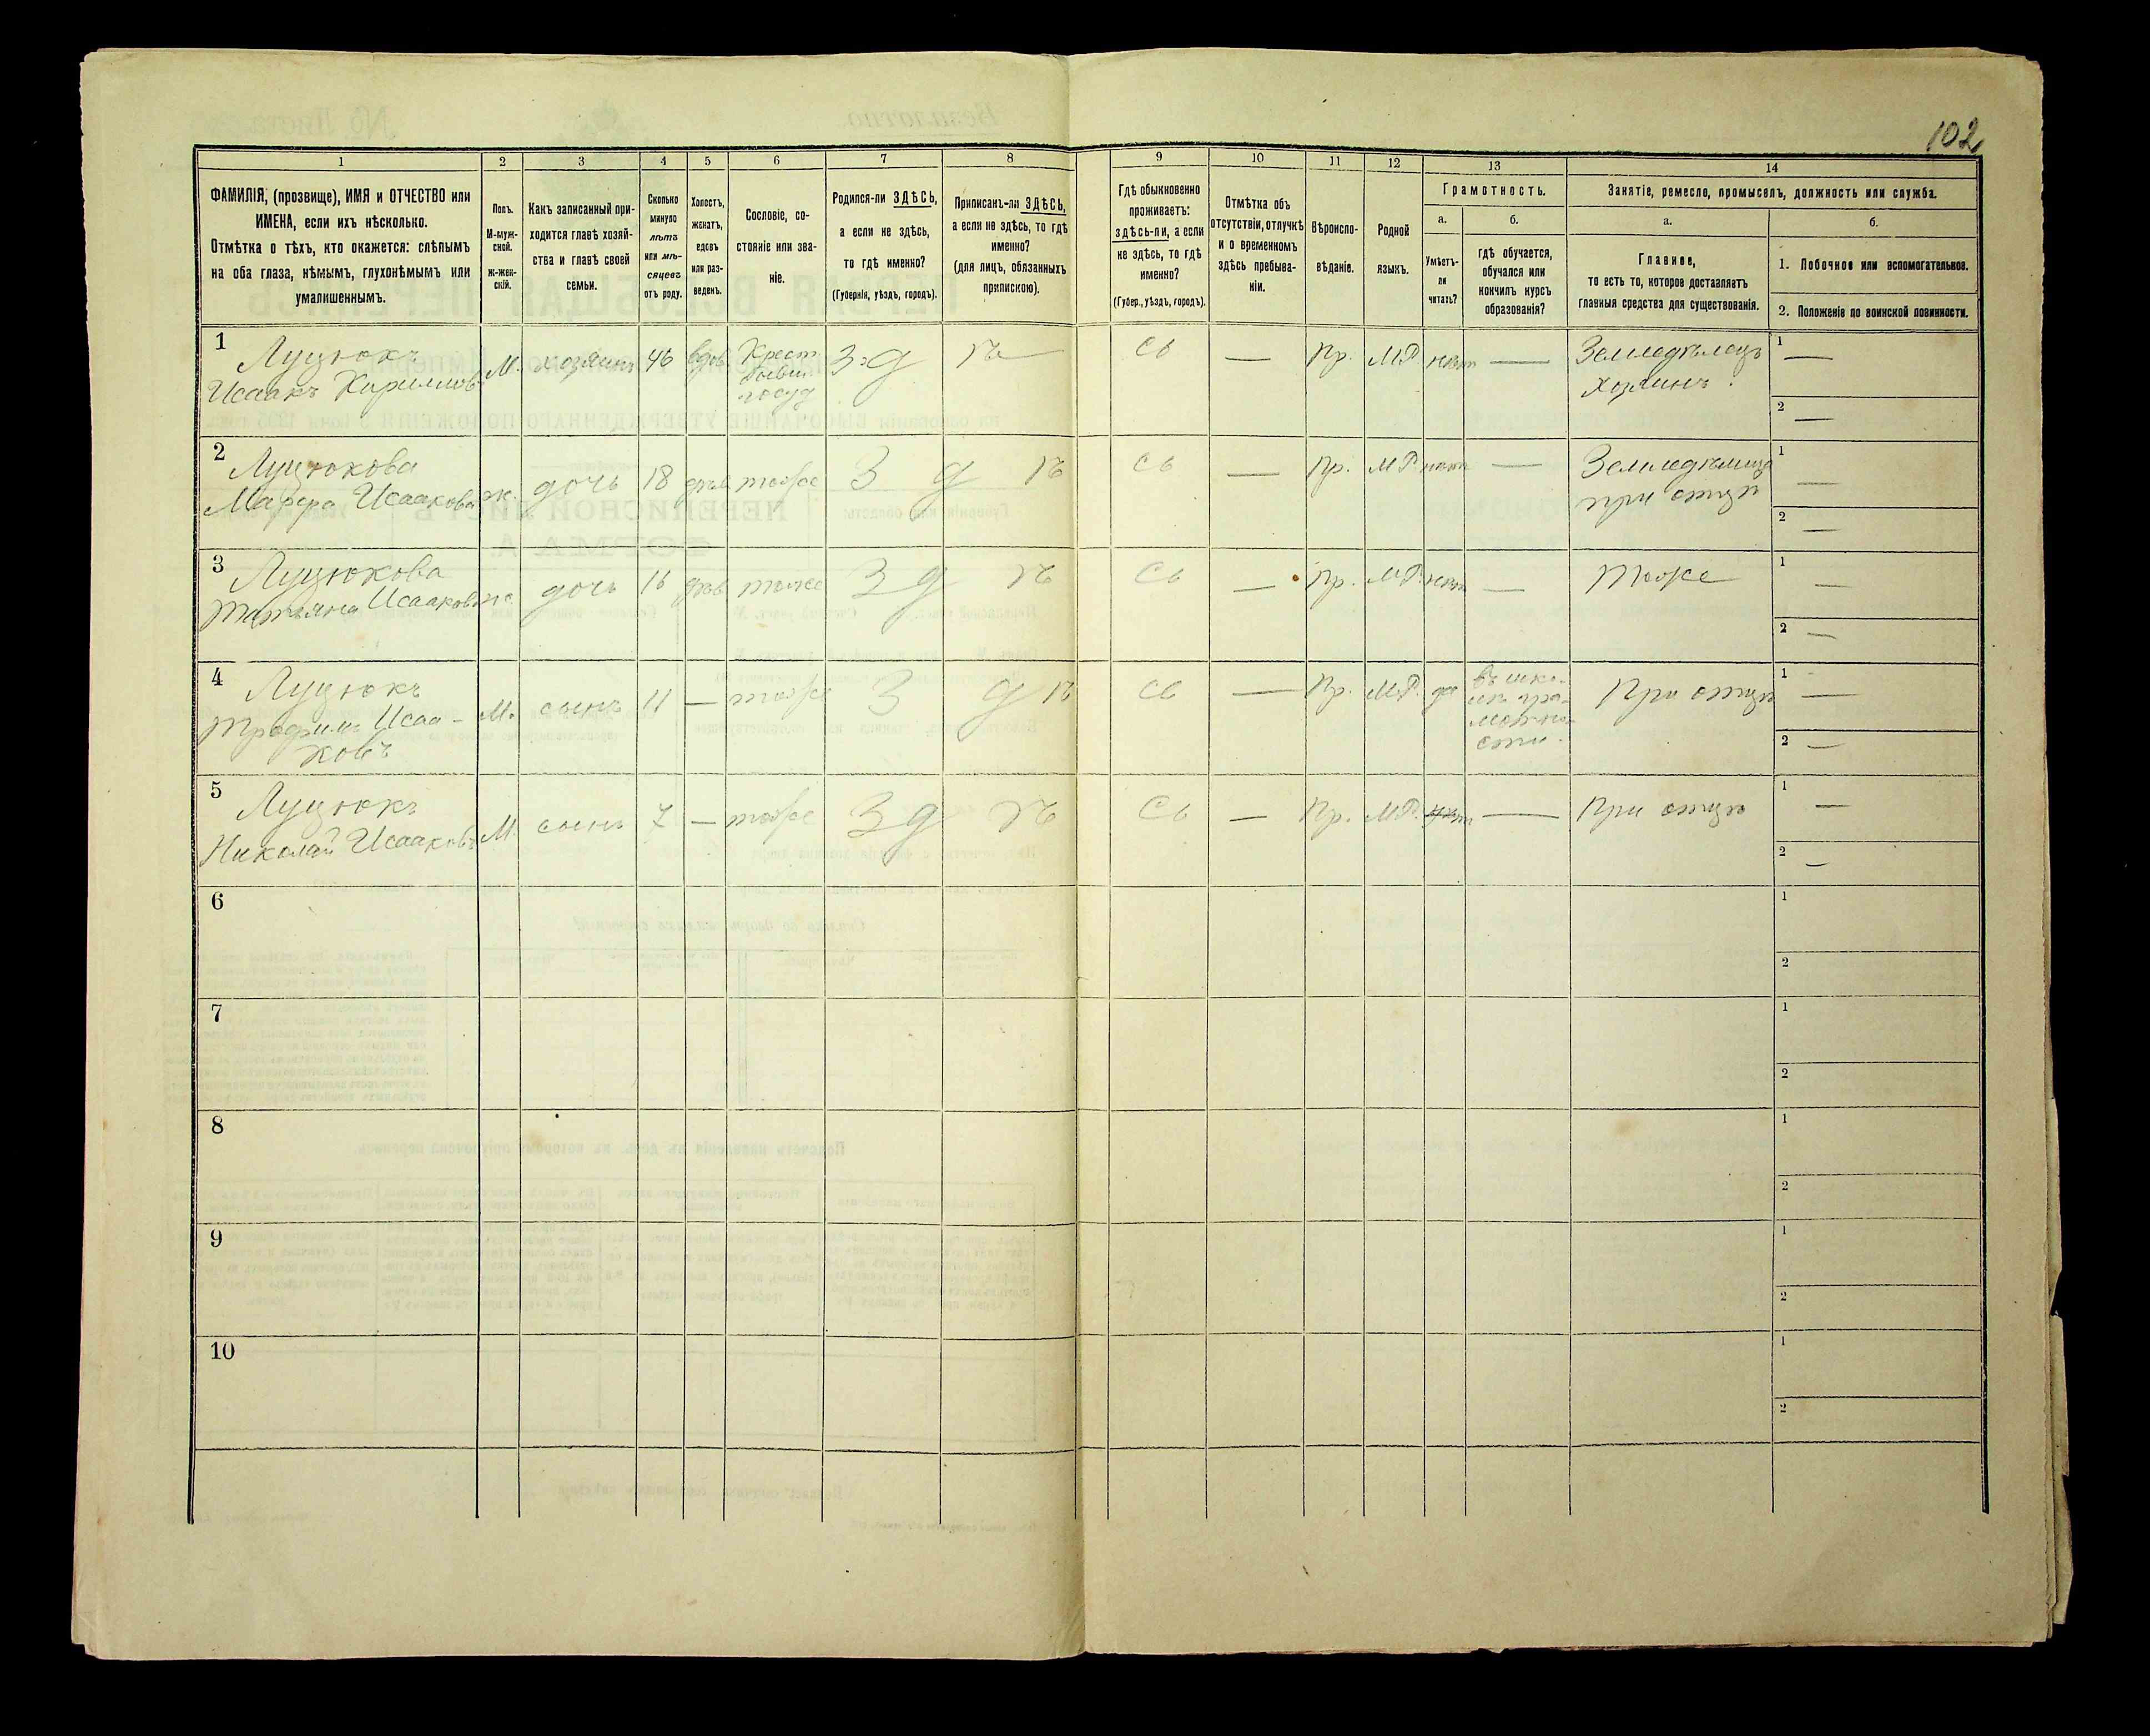 102
1 2 3 4 5 6 7 8 9 10 11 12 13 14
ФАМИЛІЯ, (прозвище), ИМЯ и ОТЧЕСТВО или
ИМЕНА, если ихъ нѣсколько.
Отмѣтка о тѣхъ, кто окажется: слѣпымъ
на оба глаза, нѣмымъ, глухонѣмымъ или
умалишеннымъ.
Полъ.
М-муж-
ской.
ж-жен-
скій.
Какъ записанный при-
ходится главѣ хозяй-
ства и главѣ своей
семьи.
Сколько
минуло
лѣтъ
или мѣ-
сяцевъ
отъ роду.
Холостъ,
женатъ,
вдовъ
или раз-
веденъ.
Сословіе, со-
стояніе или зва-
ніе.
Родился-ли ЗДѢСЬ,
а если не здѣсь,
то гдѣ именно?
(Губернія, уѣздъ, городъ).
Приписанъ-ли ЗДѢСЬ,
а если не здѣсь, то гдѣ
именно?
(для лицъ, обязанныхъ
припискою).
Гдѣ обыкновенно
проживаетъ:
здѣсь-ли, а если
не здѣсь, то гдѣ
именно?
(Губер., уѣздъ, городъ).
Отмѣтка объ
отсутствіи, отлучкѣ
и о временномъ
здѣсь пребыва-
ніи.
Вѣроиспо-
вѣданіе.
Родной
языкъ.
Грамотность.
а.
Умѣетъ-
ли
читать?
б.
гдѣ обучается,
обучался или
кончилъ курсъ
образованія?
Занятіе, ремесло, промыселъ, должность или служба.
а.
Главное,
то есть то, которое доставляетъ
главныя средства для существованія.
б.
1. Побочное или вспомогательное.
2. Положеніе по воинской повинности.
1
Луцюкъ
Исаакъ Кириллов
М. хозяинъ 46 вдов
Крест.
бывш.
госуд
Пр. М.Р. нѣтъ —
Земледѣлецъ
хозяинъ.
1 —
2 —
2
Луцюкова
Марфа Исаакова
ж. дочь 18 дѣв тоже
— Пр. М.Р. нѣтъ —
Земледѣлица
при отцѣ
1 —
2 —
3
Луцюкова
Татьяна Исааков
ж. дочь 16 дѣв тоже
— Пр. М.Р. нѣтъ —
Тоже
1 —
2 —
4
Луцюкъ
Трофимъ Исаа-
ковъ
М. сынъ 11 — тоже
— Пр. М.Р. да
въ шко-
лѣ гра-
мотно-
сти.
При отцѣ
1 —
2 —
5
Луцюкъ
Николай Исааковъ
М. сынъ 7 — тоже
— Пр. М.Р. нѣтъ —
При отцѣ
1 —
2 —
6
1
2
7
1
2
8
1
2
9
1
2
10
1
2